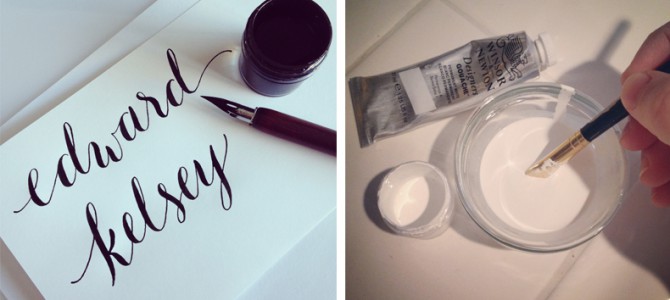 edward
kelsey
WINSOR
& NEWTON
Designers
GOUACHE